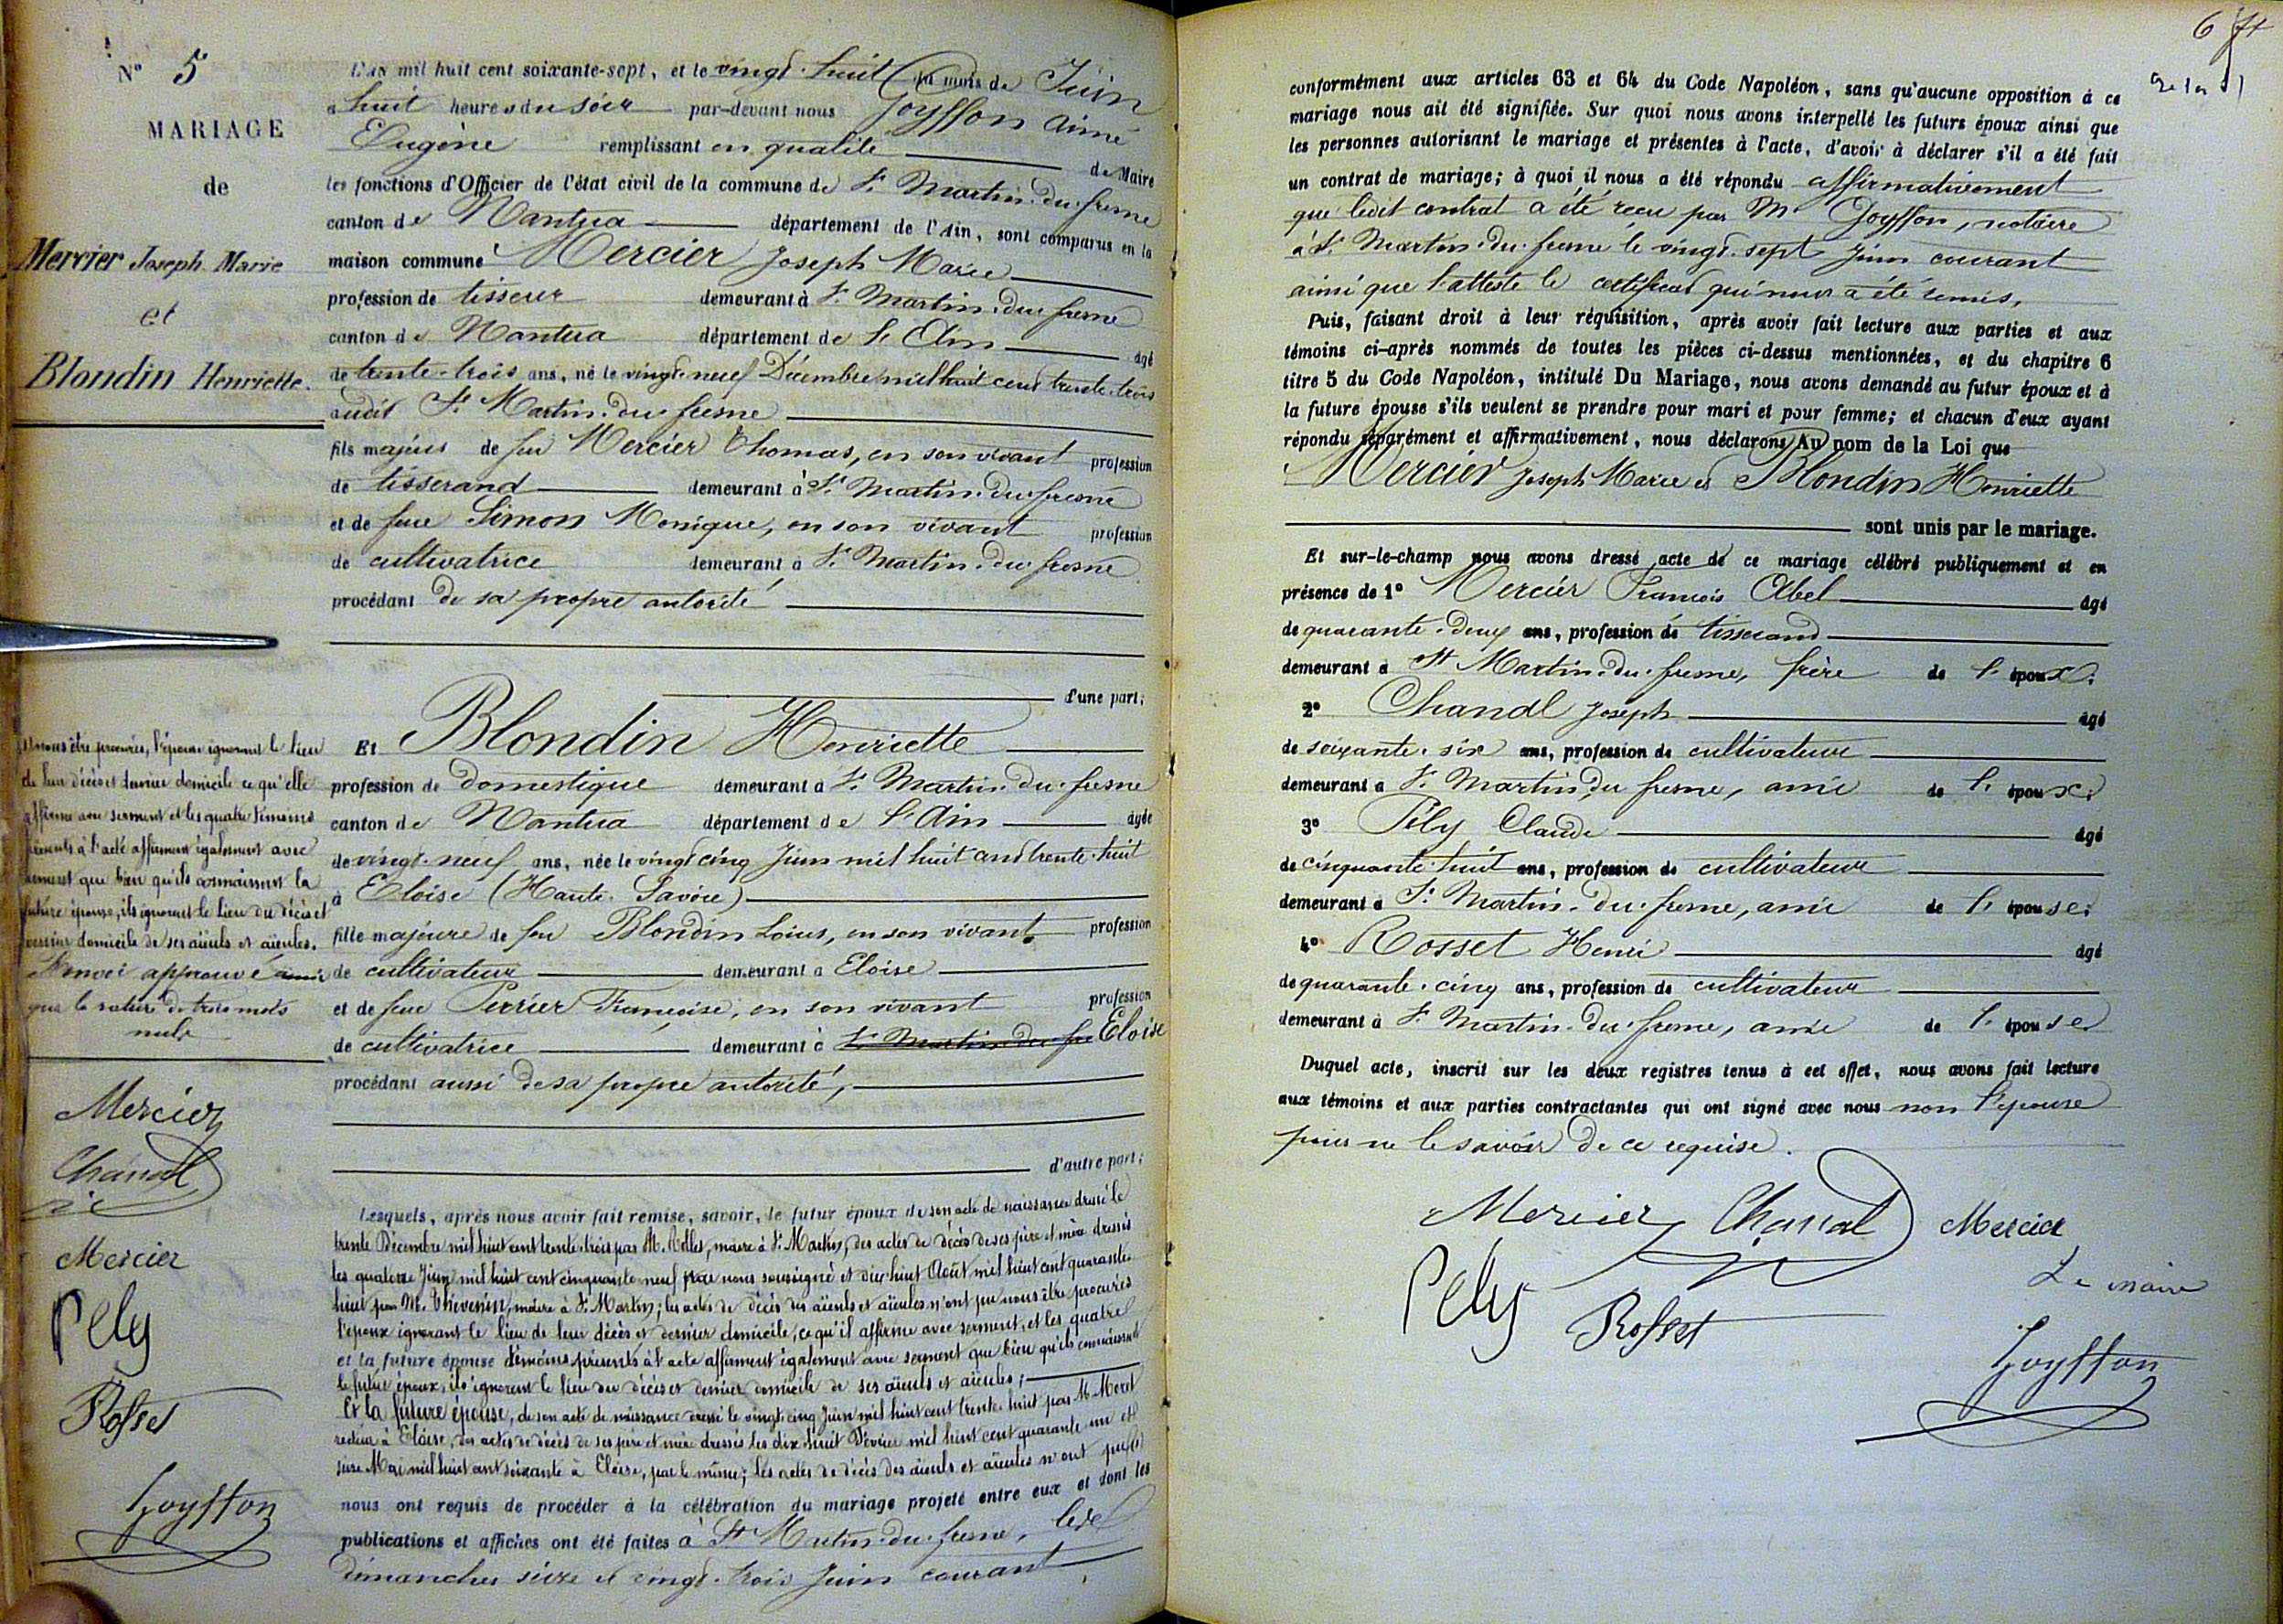 N° 5
MARIAGE
de
Mercier Joseph Marie
et
Blondin Henriette.
L'an mil huit cent soixante-sept, et le vingt-huit du mois de Juin
a huit heures du soir par-devant nous Joyffon Aimé
Eugène remplissant en qualité de Maire
les fonctions d'Officier de l'état civil de la commune de St Martin-du-fresne
canton de Nantua département de l'Ain, sont comparus en la
maison commune Mercier Joseph Marie
profession de tisseur demeurant à St Martin-du-fresne
canton de Nantua département de l'Ain âgé
de trente-trois ans, né le vingt-neuf Décembre mil huit cent trente-trois
audit St Martin-du-fresne
fils majeur de feu Mercier Thomas, en son vivant profession
de tisserand demeurant à St Martin-du-fresne
et de feue Simon Monique, en son vivant profession
de cultivatrice demeurant à St Martin-du-fresne
procédant de sa propre autorité
d'une part;
Et Blondin Henriette
profession de domestique demeurant à St Martin-du-fresne
canton de Nantua département de l'Ain âgée
de vingt-neuf ans, née le vingt cinq Juin mil huit cent trente-huit
à Eloise (Haute-Savoie)
fille majeure de feu Blondin Loius, en son vivant profession
de cultivateur demeurant à Eloise
et de feue Perrier Françoise, en son vivant profession
de cultivatrice demeurant à St Martin-du-fre Eloise
procédant aussi de sa propre autorité,
d'autre part;
Lesquels, après nous avoir fait remise, savoir, le futur époux de son acte de naissance dressé le
trente Décembre mil huit cent trente-trois par M. maire à St Martin, des actes de décès de ses père et mère dressés
les quatorze Juin mil huit cent cinquante neuf par nous soussigné et dix-huit Août mil huit cent quarante-
huit par M. Thévenin, maire à St Martin; les actes de décès des aïeuls et aïeules n'ont pu nous être procurés
l'époux ignorant le lieu de leur décès et dernier domicile, ce qu'il affirme avec serment, et les quatre
et la future épouse témoins présents à l'acte affirment également avec serment que bien qu'ils connaissent
le futur époux, ils ignorent le lieu du décès et dernier domicile de ses aïeuls et aïeules;
Et la future épouse, de son acte de naissance dressé le vingt cinq Juin mil huit cent trente-huit par M. Moret
recteur à Eloise, des actes de décès de ses père et mère dressés les dix huit Février mil huit cent quarante un et
seize Mai mil huit cent soixante à Eloise, par le même; les actes de décès des aïeuls et aïeules n'ont pu
nous ont requis de procéder à la célébration du mariage projeté entre eux et dont les
publications et affiches ont été faites à St Martin-du-fresne, les
dimanches seize et vingt-trois Juin courant
nous être procurés, l'épouse ignorant le lieu
de leur décès et dernier domicile ce qu'elle
affirme avec serment et les quatre témoins
présents à l'acte affirment également avec
serment que bien qu'ils connaissent la
future épouse, ils ignorent le lieu du décès et
dernier domicile de ses aïeuls et aïeules.
Renvoi approuvé ainsi
que la rature de trois mots
nuls
Mercier
Chanal
Mercier
Pely
Rosset
Joyffon
6
conformément aux articles 63 et 64 du Code Napoléon, sans qu'aucune opposition à ce
mariage nous ait été signifiée. Sur quoi nous avons interpellé les futurs époux ainsi que
les personnes autorisant le mariage et présentes à l'acte, d'avoir à déclarer s'il a été fait
un contrat de mariage; à quoi il nous a été répondu affirmativement
que ledit contrat a été reçu par Me Joyffon, notaire
à St Martin-du-fresne le vingt-sept Juin courant
ainsi que l'atteste le certificat qui nous a été remis,
Puis, faisant droit à leur réquisition, après avoir fait lecture aux parties et aux
témoins ci-après nommés de toutes les pièces ci-dessus mentionnées, et du chapitre 6
titre 5 du Code Napoléon, intitulé Du Mariage, nous avons demandé au futur époux et à
la future épouse s'ils veulent se prendre pour mari et pour femme; et chacun d'eux ayant
répondu séparément et affirmativement, nous déclarons Au nom de la Loi que
Mercier Joseph Marie et Blondin Henriette
sont unis par le mariage.
Et sur-le-champ nous avons dressé acte de ce mariage célébré publiquement et en
présence de 1° Mercier François Abel âgé
de quarante-deux ans, profession de tisserand
demeurant à St Martin-du-fresne, frère de l'époux.
2° Chanal Joseph âgé
de soixante-six ans, profession de cultivateur
demeurant à St Martin du fresne, ami de l'époux.
3° Pély Claude âgé
de cinquante-huit ans, profession de cultivateur
demeurant à St Martin-du-fresne, ami de l'épouse.
4° Rosset Henri âgé
de quarante-cinq ans, profession de cultivateur
demeurant à St Martin-du-fresne, ami de l'épouse
Duquel acte, inscrit sur les deux registres tenus à cet effet, nous avons fait lecture
aux témoins et aux parties contractantes qui ont signé avec nous non l'épouse
pour ne le savoir de ce requise.
Mercier Chanal Mercier
Pely Rosset
Le maire
Joyffon